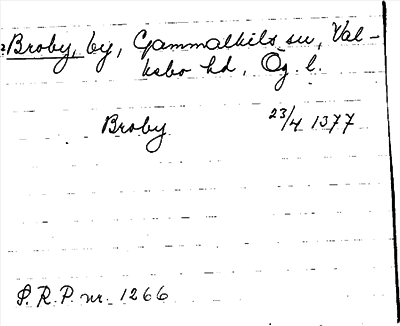 Broby, by, Gammalkils su, Val-
kebo hd, Ög. l.
Broby 23/4 1377
S.R.P. nr. 1266